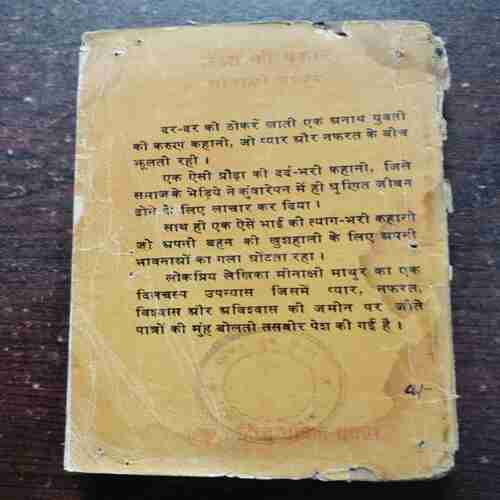 दर-दर की ठोकरें खाती एक अनाथ युवती
की करुण कहानी, जो प्यार और नफरत के बीच
झूलती रही ।
एक ऐसी प्रौढ़ा की दर्द-भरी कहानी, जिसे
समाज के भेड़िये ने कुंवारेपन में ही घृणित जीवन
ढोने के लिए लाचार कर दिया ।
साथ ही एक ऐसे भाई की त्याग-भरी कहानी
जो अपनी बहन की खुशहाली के लिए अपनी
भावनाओं का गला घोंटता रहा ।
लोकप्रिय लेखिका मीनाक्षी माथुर का एक
दिलचस्प उपन्यास जिसमें प्यार, नफरत,
विश्वास और अविश्वास की जमीन पर जीते
पात्रों की मुंह बोलती तस्वीर पेश की गई है ।
4/-